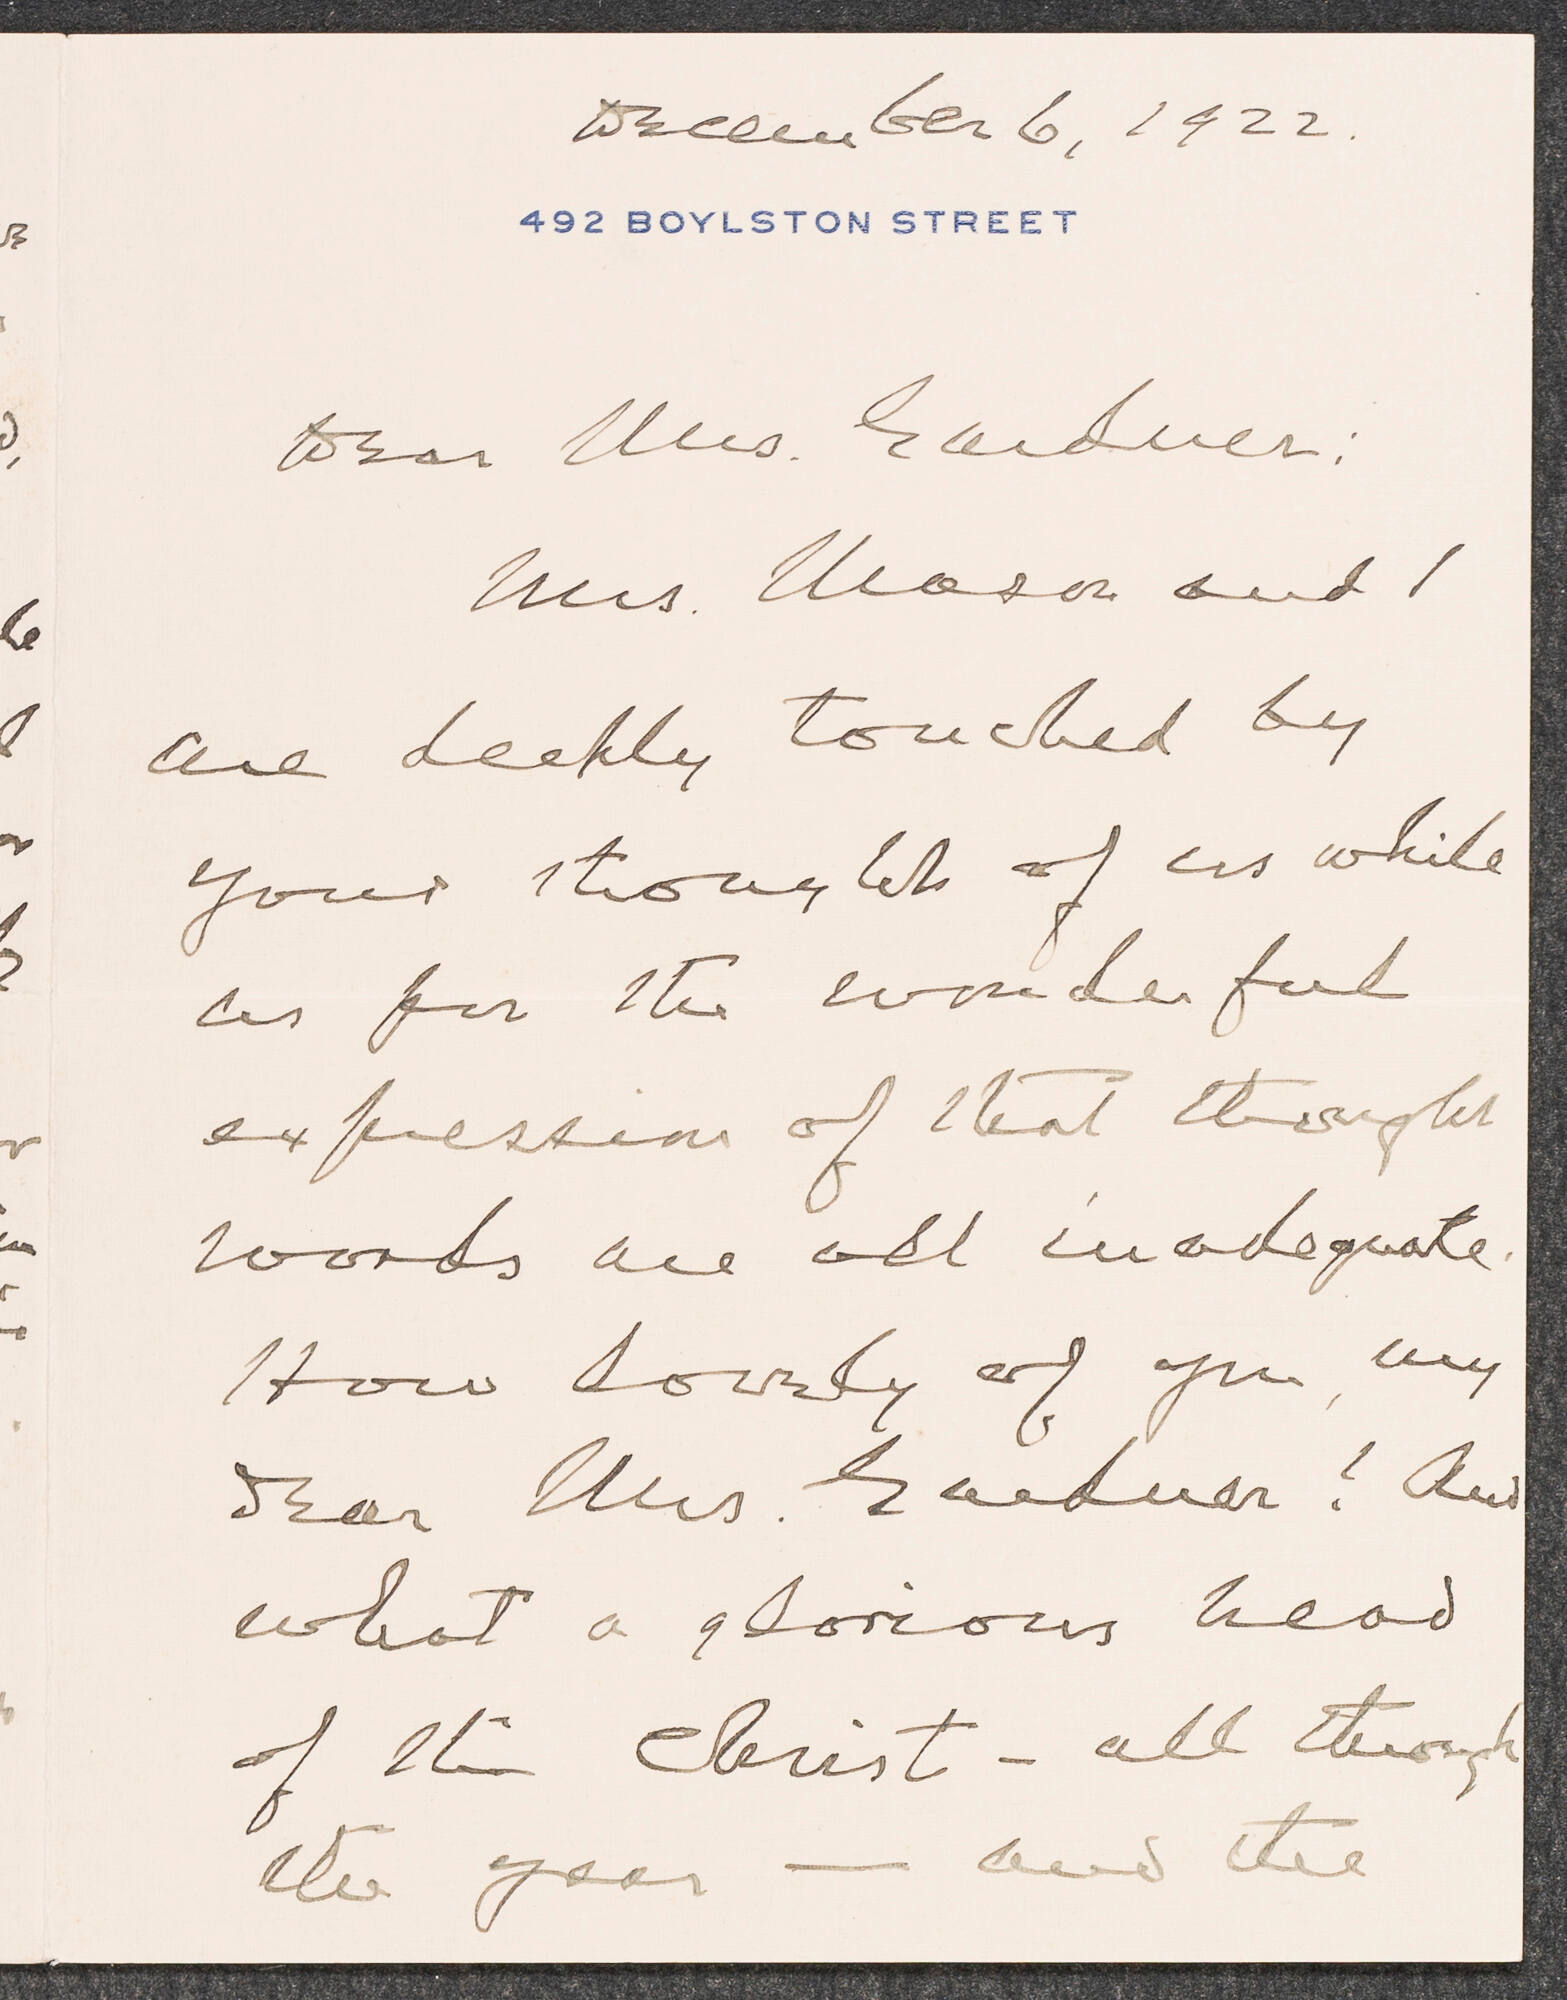 December 6, 1922.
492 BOYLSTON STREET
Dear Mrs. Gardner:
Mrs. Mason and I
are deeply touched by
your thought of us while
as for the wonderful
expression of that thought
words are all inadequate.
How lovely of you, my
dear Mrs. Gardner! And
what a glorious head
of the Christ - all through
the year — and the